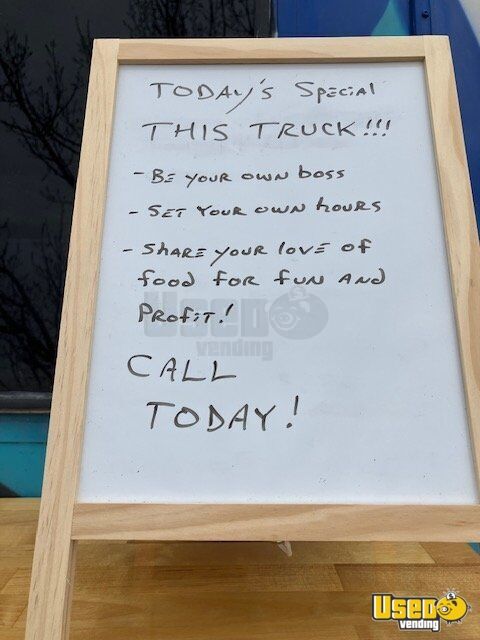 TODAY'S SPECIAL
THIS TRUCK!!!
- BE YOUR OWN BOSS
- SET YOUR OWN HOURS
- SHARE YOUR LOVE OF
FOOD FOR FUN AND
PROFIT!
USED
vending
CALL
TODAY!
USED
vending